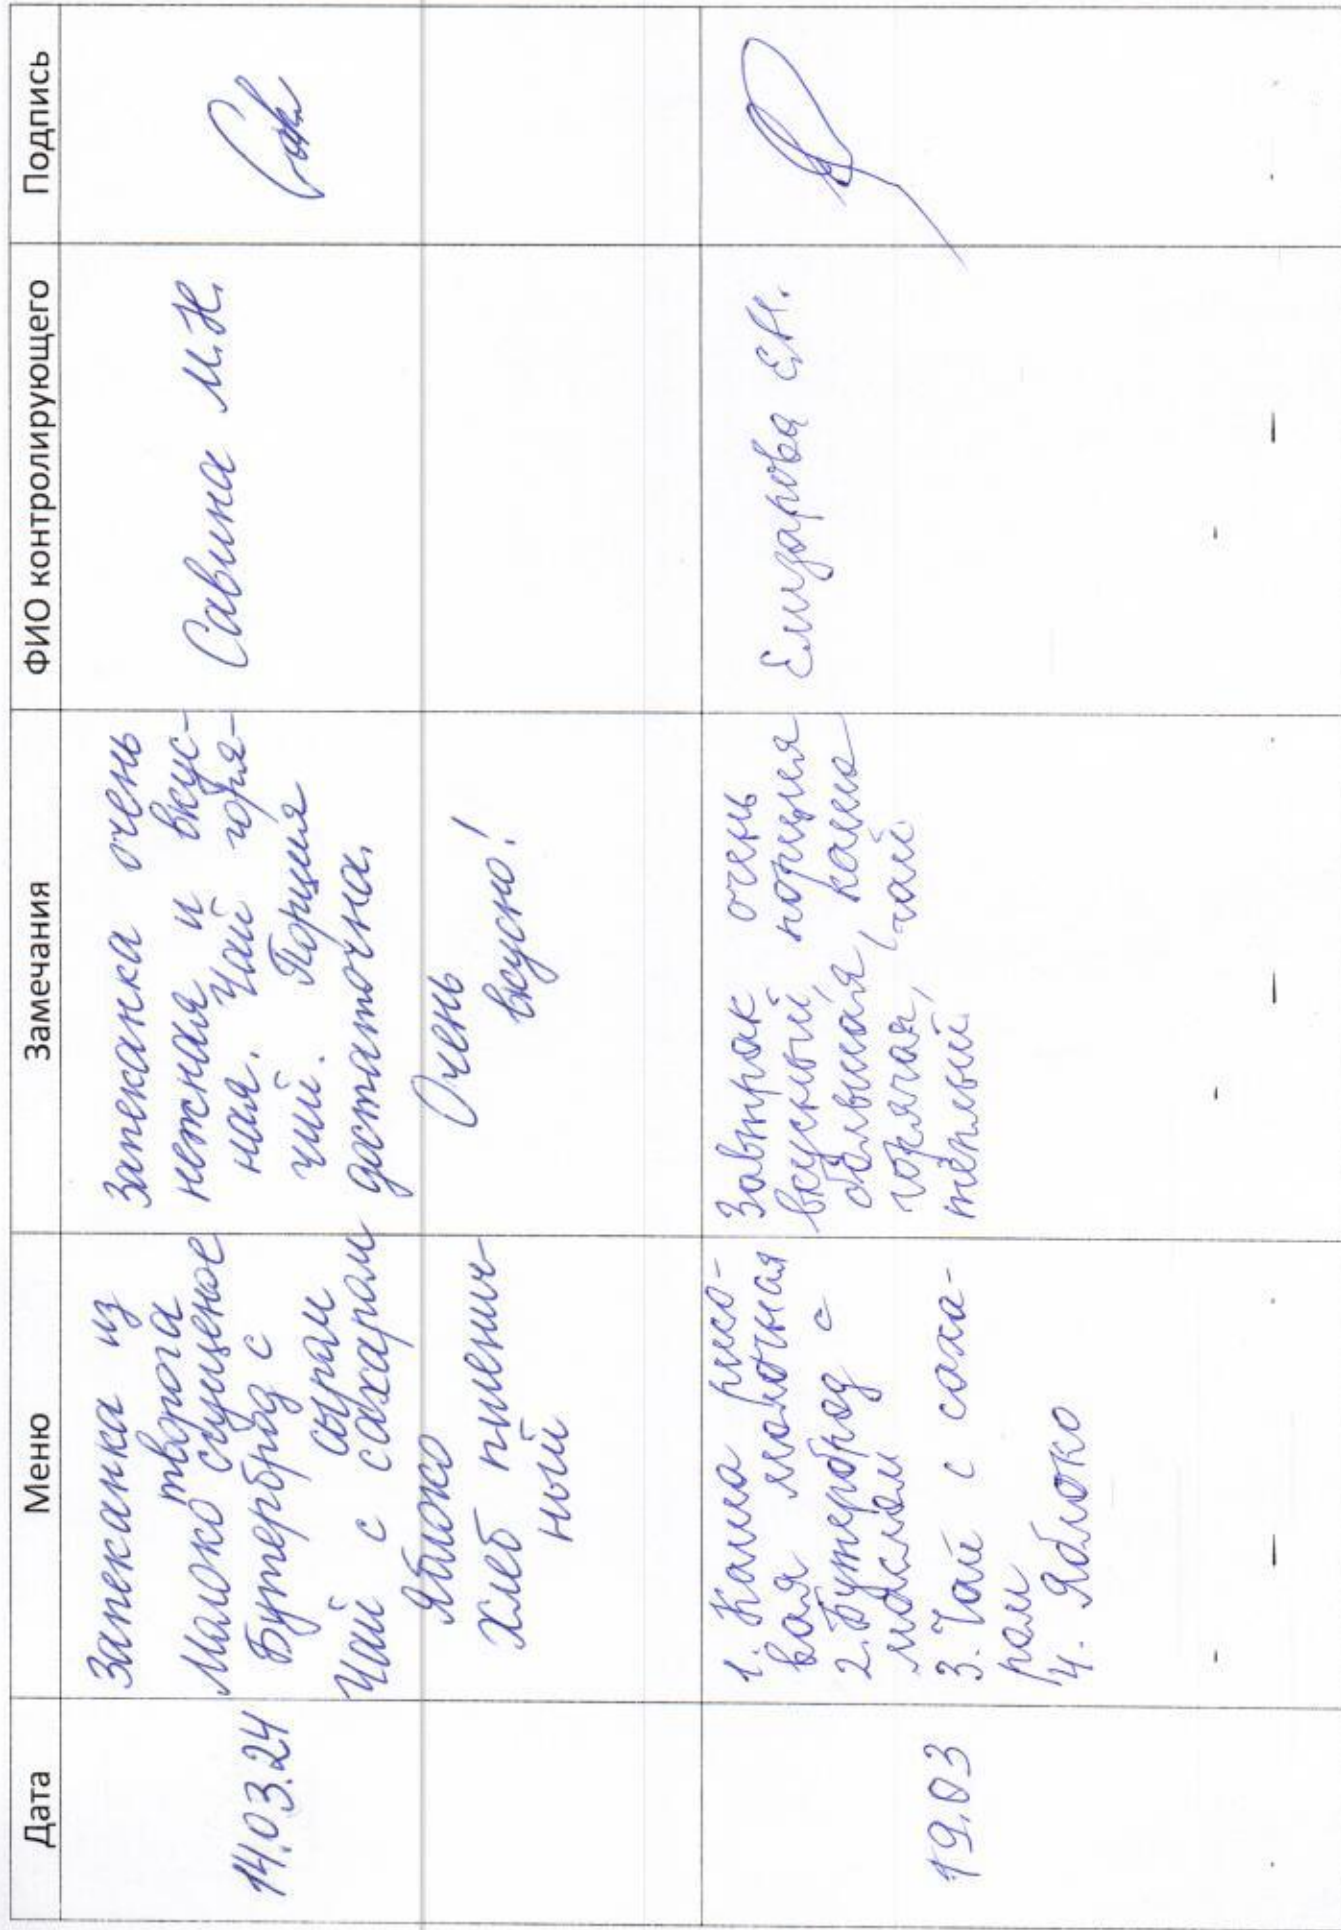 Дата Меню Замечания ФИО контролирующего Подпись
14.03.24
Запеканка из
творога
Молоко сгущеное
Бутерброд с
сыром
Чай с сахаром
Яблоко
Хлеб пшенич-
ный
Запеканка очень
нежная и вкус-
ная. Чай горя-
чий. Порция
достаточна.
Очень
вкусно!
Савина М.Н.
19.03
1. Каша рисо-
вая молочная
2. Бутерброд с
маслом
3. Чай с саха-
ром
4. Яблоко
Завтрак очень
вкусный, порция
большая, каша
горячая, чай
теплый
Елизарова Е.Н.